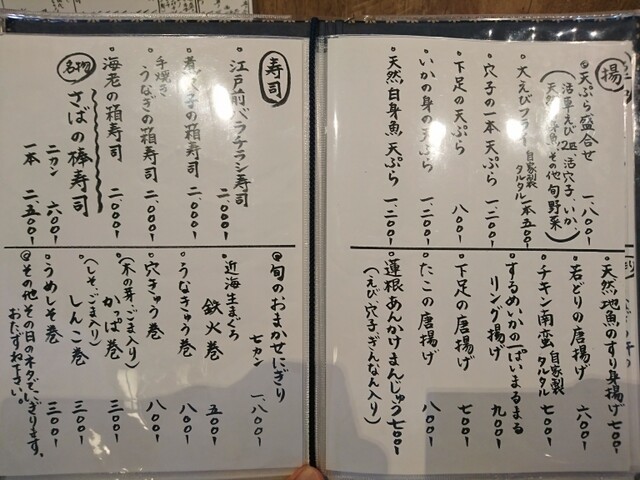 揚
◎天ぷら盛合せ 一、八〇〇-
(活車えび2匹 活穴子、いか、
天然白身魚 その他 旬野菜)
・大えびフライ 自家製タルタル 一本 五〇〇-
・穴子の一本天ぷら 一、二〇〇-
・下足の天ぷら 八〇〇-
・いかの身の天ぷら 一、二〇〇-
・天然白身魚 天ぷら 一、二〇〇-
・天然地魚のすり身揚げ 七〇〇-
・若どりの唐揚げ 六〇〇-
・チキン南蛮 自家製タルタル 七〇〇-
・するめいかの一ぱいまるまる
リング揚げ 九〇〇-
・下足の唐揚げ 七〇〇-
・たこの唐揚げ 八〇〇-
・蓮根あんかけまんじゅう 七〇〇-
(えび、穴子、ぎんなん入り)
寿司
・江戸前バラチラシ寿司 二、〇〇〇-
・煮穴子の箱寿司 二、〇〇〇-
・手焼き うなぎの箱寿司 二、〇〇〇-
・海老の箱寿司 二、〇〇〇-
名物 さばの棒寿司
二カン 六〇〇-
一本 二、五〇〇-
◎旬のおまかせにぎり
七カン 一、八〇〇-
・近海生まぐろ
鉄火巻 五〇〇-
・うなきゅう巻 八〇〇-
・穴きゅう巻 八〇〇-
(木の芽、ごま入り)
・かっぱ巻 三〇〇-
(しそ、ごま入り)
・しんこ巻 三〇〇-
・うめしそ巻 三〇〇-
◎その他その日のネタでにぎります。
おたずね下さい。